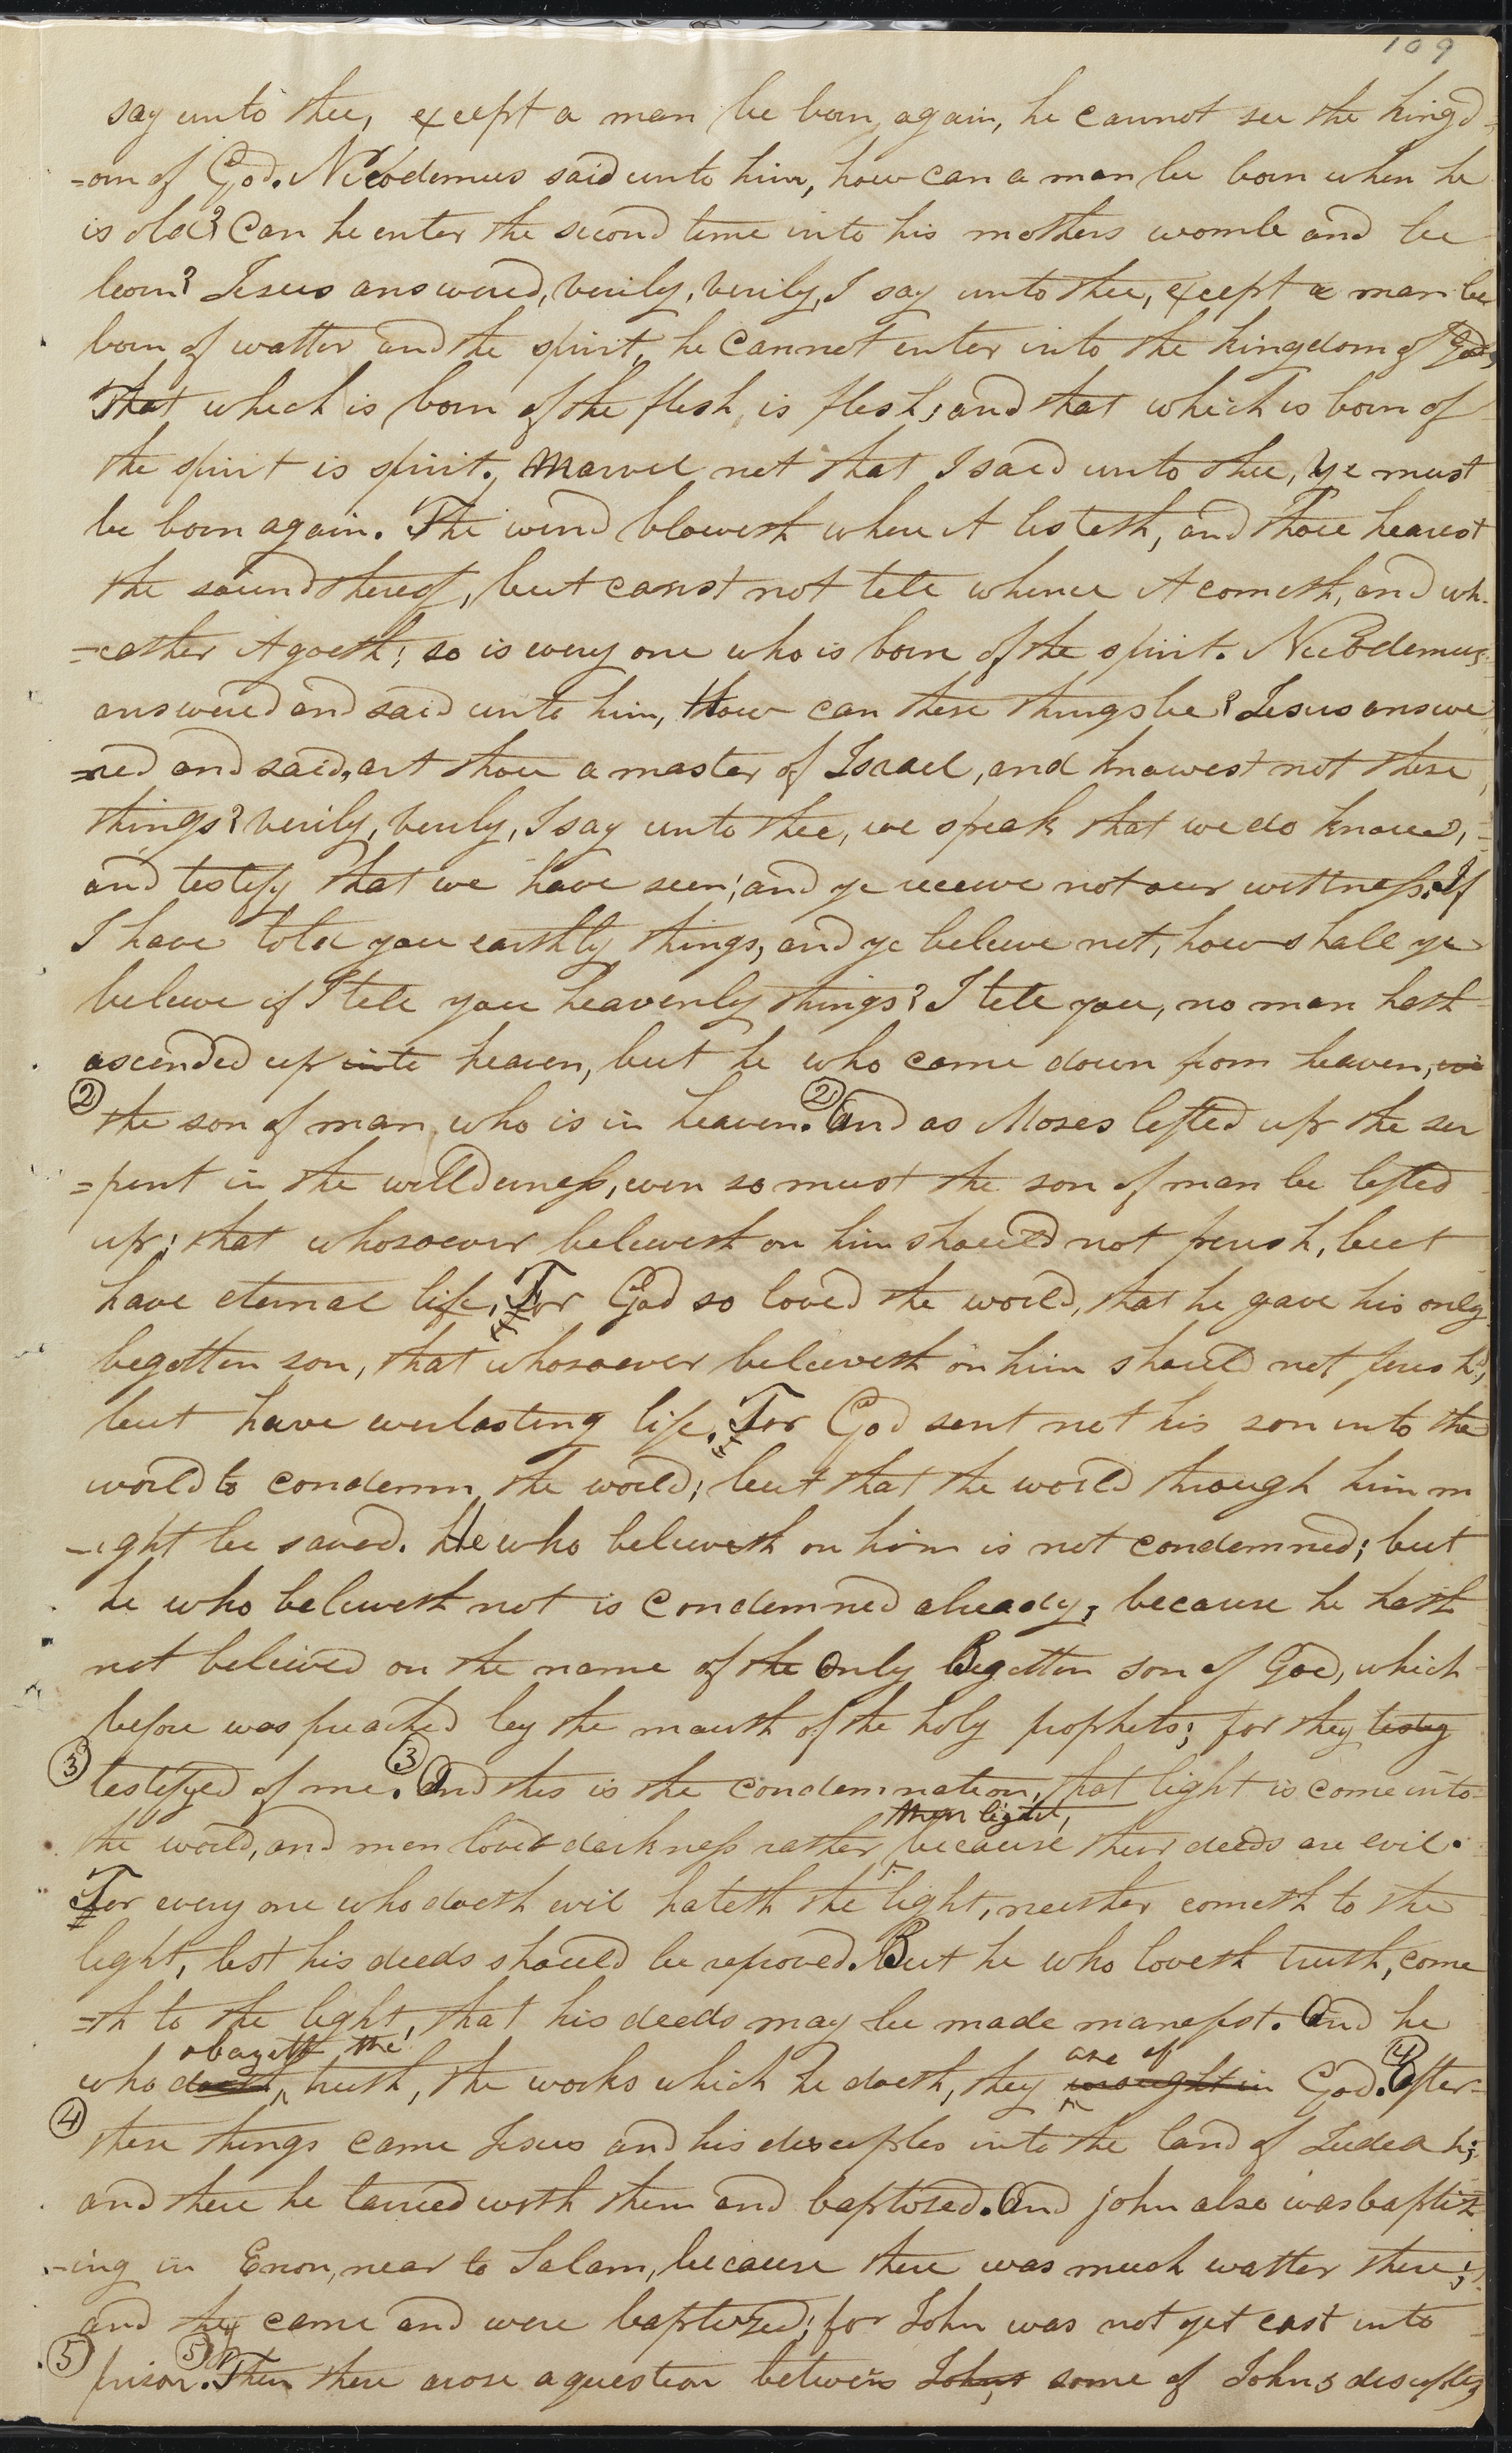 109
say unto thee, except a man be born again, he cannot see the kingd
=om of God. Nicodemus said unto him, how can a man be born when he
is old? Can he enter the second time into his mothers womb and be
born? Jesus answered, verily, verily, I say unto thee, except a man be
born of watter and the spirit, he cannot enter into the kingdom of God,
That which is born of the flesh is flesh; and that which is born of
the spirit is spirit. Marvel not that I said unto thee, ye must
be born again. The wind bloweth where it listeth, and thou hearest
the sound thereof, but canst not tell whence it cometh, and wh-
=eather it goeth; so is every one who is born of the spirit. Nicodemus
answered and said unto him, How can these things be? Jesus answe
=red and said, art thou a master of Israel, and knowest not these
things? verily, verily, I say unto thee, we speak that we do know,
and testify that we have seen; and ye receive not our wittness. If
I have told you earthly things, and ye believe not, how shall ye
believe if I tell you heavenly things? I tell you, no man hath
ascended up into heaven, but he who came down from heaven,
② the son of man who is in heaven. ② And as Moses lifted up the ser
=pent in the willderness, even so must the son of man be lifted
up; that whosoever believeth on him should not perish, but
have eternal life. For God so loved the world, that he gave his only
begotten son, that whosoever believeth on him should not perish;
but have everlasting life. For God sent not his son into the
world to condemn the world; but that the world through him m
-ight be saved. He who believeth on him is not condemned; but
he who believeth not is condemned already, because he hath
not believed on the name of the only Begotten son of God, which
before was preached by the mouth of the holy prophets; for they testey
③ testifyed of me. ③ And this is the condemnation, that light is come into
than light,
the world, and men loved darkness rather because their deeds are evil.
For every one who doeth evil hateth the light, neither cometh to the
light, lest his deeds should be reproved. But he who loveth truth, come
=th to the light, that his deeds may be made manefest. And he
obayeth the are of
who doeth truth, the works which he doeth, they wrought in God. ④ After
④ these things came Jesus and his desciples into the land of Judeah;
and there he tarried with them and baptised. And john also was baptiz
-ing in Enon, near to Salam, because there was much watter there;
and they came and were baptized; for John was not yet cast into
⑤ prison. ⑤ Then there arose a question between Johns some of Johns desciples